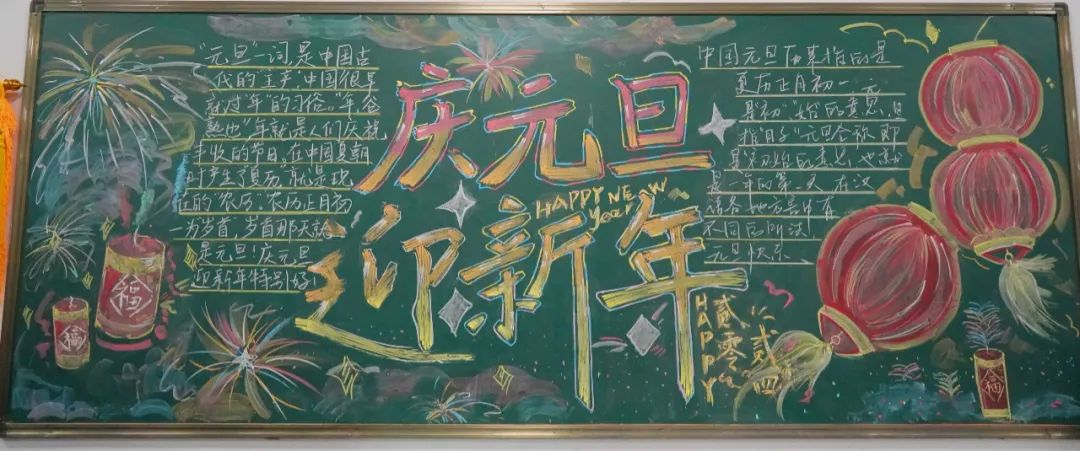 "元旦"一词,是中国古
代的"土产".中国很早
就过"年"的习俗。"年,谷
熟也"年就是人们庆祝
丰收的节日,在中国夏朝
时产生了"夏历"就是现
在的"农历",农历正月初
一为岁首,岁首那天就
是元旦!庆元旦
迎新年特别好!
庆元旦
HAPPY NEW
year
迎新年
HAPPY
贰零
贰四
中国元旦历来指的是
夏历正月初一.元
是"初""始"的意思,旦
指日子"元旦"合称即
是"初始的
是一年的第一天.在汉
不同
元旦快乐
福
福
福